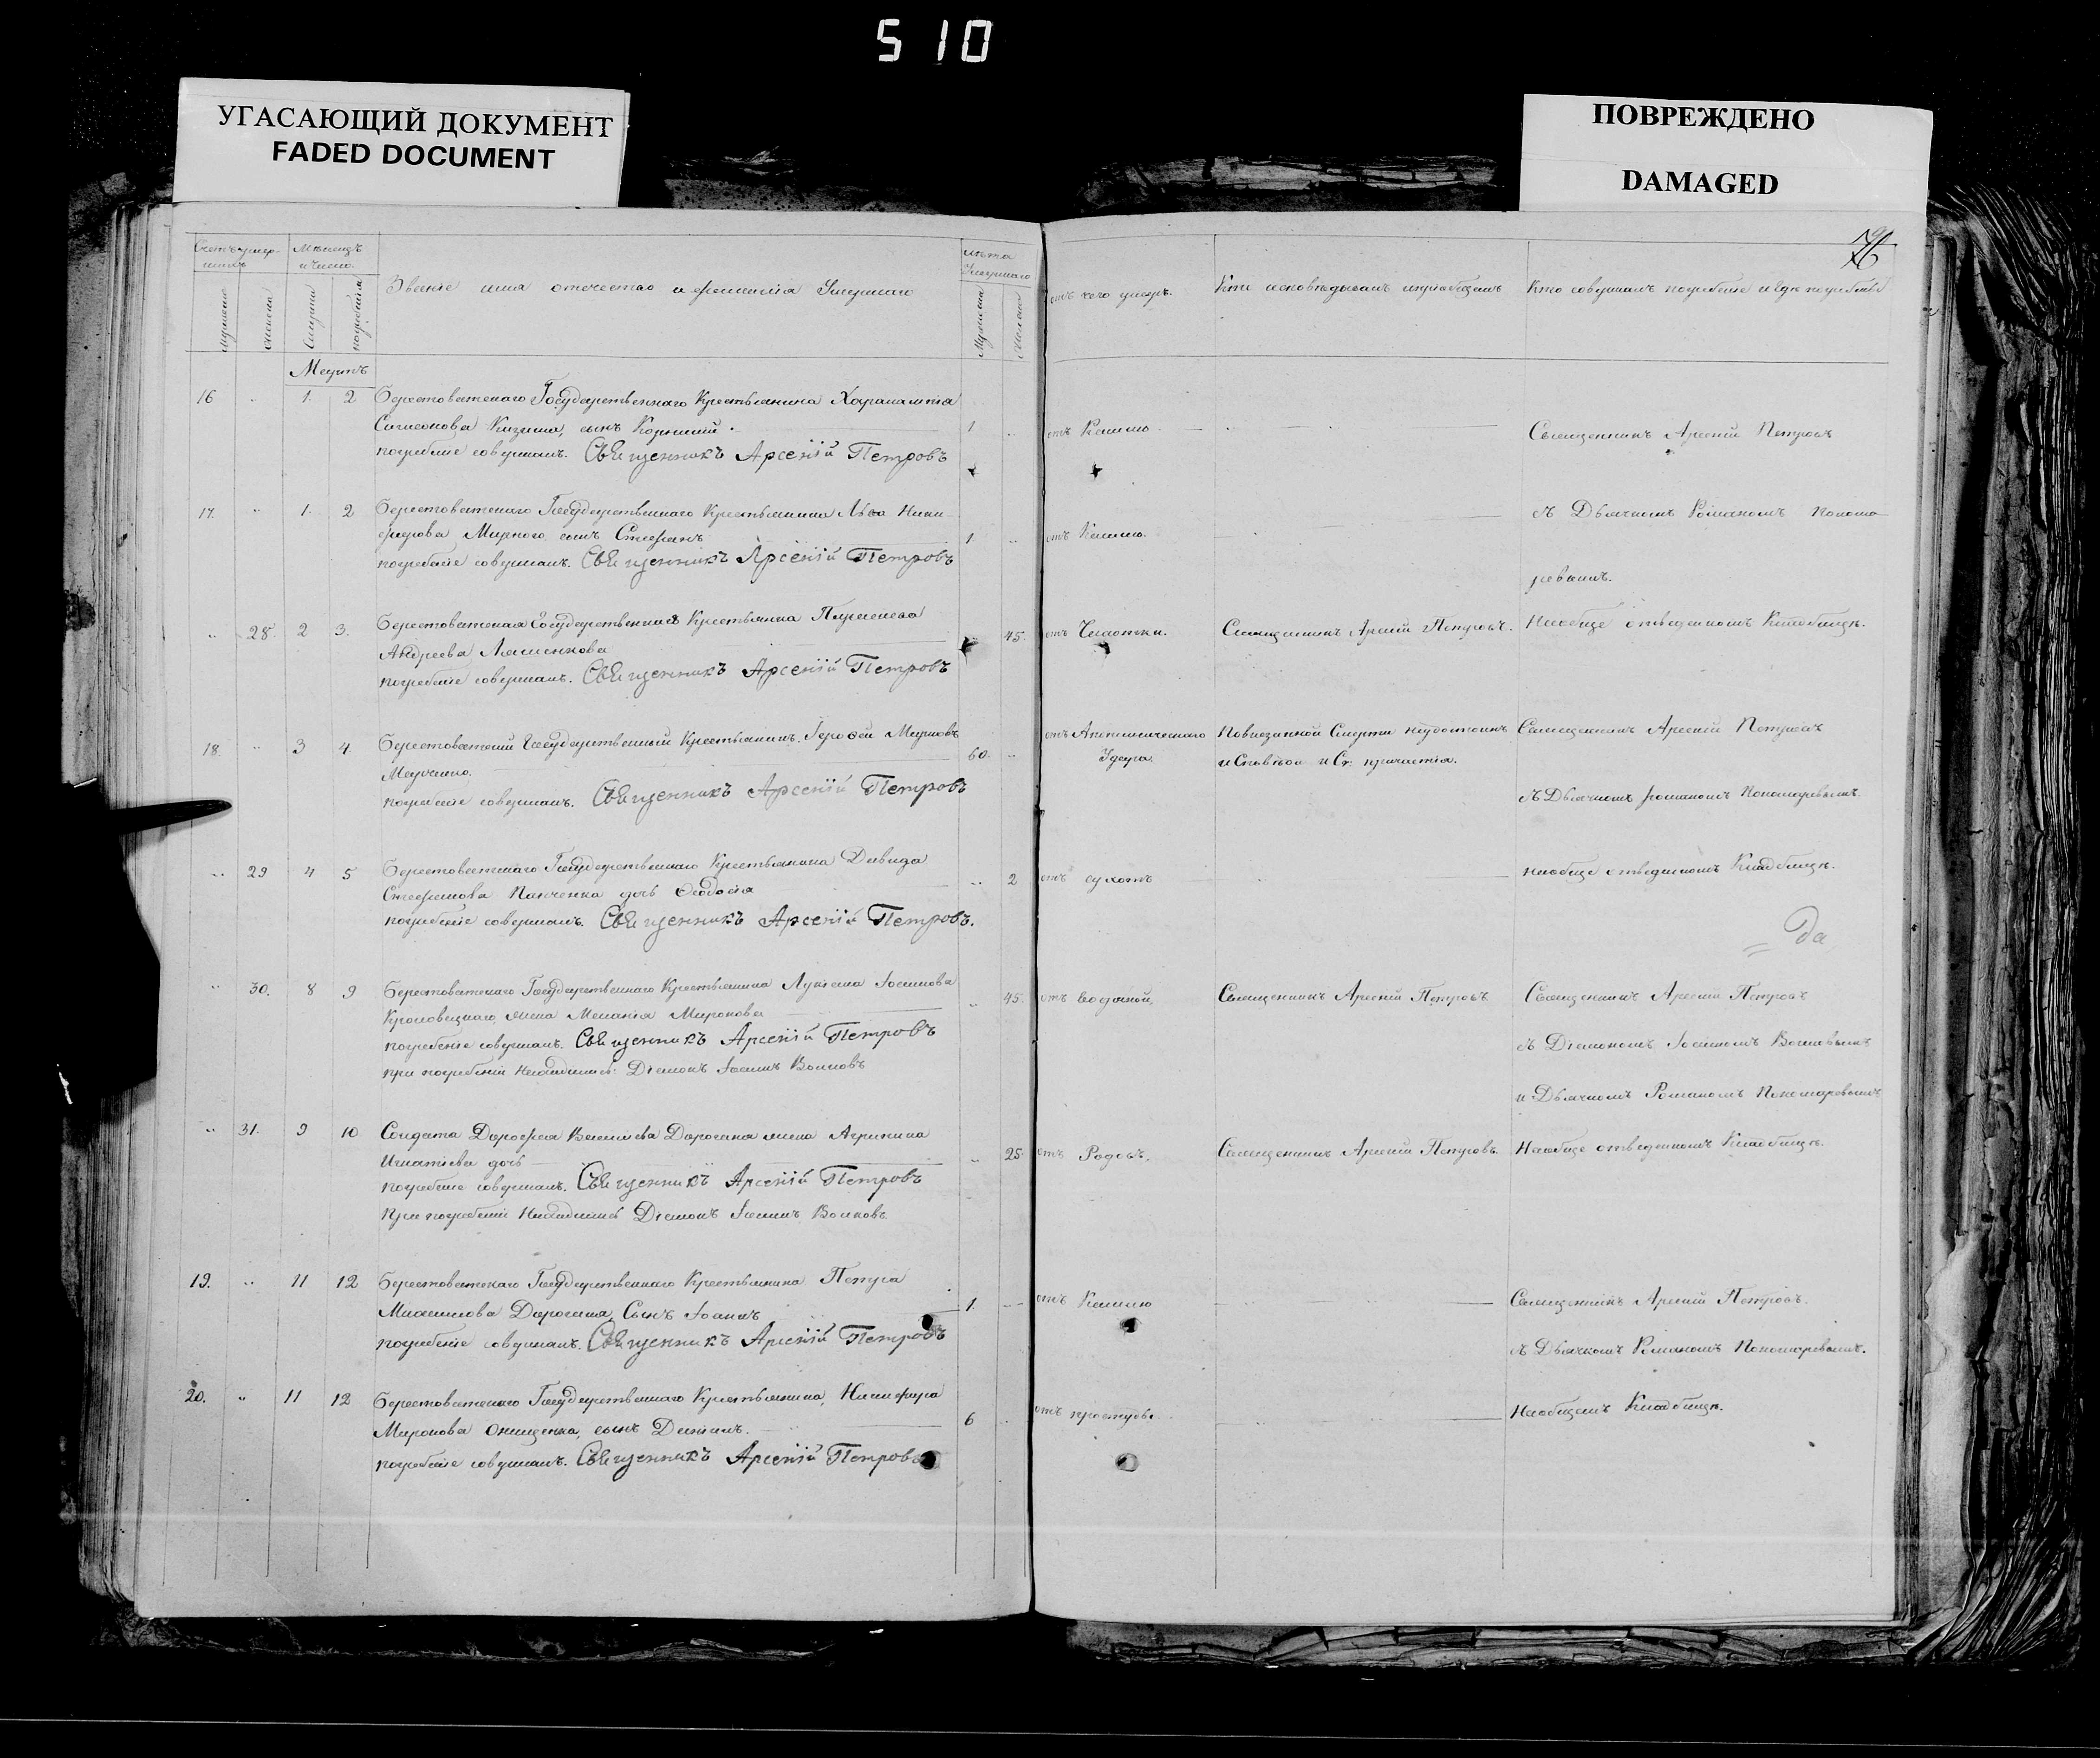 510
УГАСАЮЩИЙ ДОКУМЕНТ
FADED DOCUMENT
ПОВРЕЖДЕНО
DAMAGED
76
Счетъ умер-
шихъ
Мѣсяцъ
и число.
Званіе имя отечество и фамилія Умершаго
лѣта
Умершаго
отъ чего умеръ.
Кто исповѣдывалъ и приобщалъ
Кто совершалъ погребеніе и где погребены
мужеска
женска
Смерти
погребенія
Мужеска
Женска
Мартъ
16 " 1. 2 Берестоватскаго Государственнаго Крестьянина Харалампія
Симеонова Кизима, сынъ Корнилій. 1 " отъ Кашлю. Священникъ Арсеній Петровъ
погребеніе совершалъ. Священникъ Арсеній Петровъ
17. " 1. 2 Берестоватскаго Государственнаго Крестьянина Льва Ники-
форова Мирного сынъ Стефанъ 1 " отъ Кашлю. съ Дьячкомъ Романомъ Понома
погребеніе совершалъ. Священникъ Арсеній Петровъ ревымъ.
" 28. 2 3. Берестоватская Государственная Крестьянка
Андреева 45. отъ Чахотки. Священникъ Арсеній Петровъ. На обще отведенномъ Кладбищѣ.
погребеніе совершалъ. Священникъ Арсеній Петровъ
18. " 3 4. Берестоватскій Государственный Крестьянинъ Мироновъ
60. " отъ Апоплексическаго По внезапной Смерти неудостоенъ Священникъ Арсеній Петровъ
Удара. и Ст. причастія.
погребеніе совершалъ. Священникъ Арсеній Петровъ съ Дьячкомъ Романомъ Пономаревымъ.
" 29 4 5 Берестоватскаго Государственнаго Крестьянина Давида
Стефанова Панченка дочь Феодосія " 2 отъ сухотъ на обще отведенномъ Кладбищѣ.
погребеніе совершалъ. Священникъ Арсеній Петровъ.
= Да
" 30. 8 9 Берестоватскаго Государственнаго Крестьянина Лукіана
жена Меланія Миронова " 45. отъ Водяной Священникъ Арсеній Петровъ Священникъ Арсеній Петровъ
погребеніе совершалъ. Священникъ Арсеній Петровъ съ Діакономъ Іоанномъ Волковымъ
при погребеніи находился: Діаконъ Іоаннъ Волковъ и Дьячкомъ Романомъ Пономаревымъ
" 31. 9 10 Солдата Дорофея Васильева жена Агрипина
Игнатіева дочь " 25 отъ Родовъ. Священникъ Арсеній Петровъ. На обще отведенномъ Кладбищѣ.
погребеніе совершалъ. Священникъ Арсеній Петровъ
При погребеніи Находился Діаконъ Іоаннъ Волковъ.
19. " 11 12 Берестоватскаго Государственнаго Крестьянина Петра
Сынъ Іоаннъ 1. " отъ Кашлю Священникъ Арсеній Петровъ.
погребеніе совершалъ. Священникъ Арсеній Петровъ съ Дьячкомъ Романомъ Пономаревымъ.
20. " 11 12 Берестоватскаго Государственнаго Крестьянина, Никифора
Миронова Онищенка, сынъ Даніилъ. 6 " отъ простуды. На общемъ Кладбищѣ.
погребеніе совершалъ. Священникъ Арсеній Петровъ